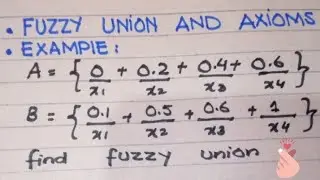 • FUZZY UNION AND AXIOMS
• EXAMPIE:
A = { 0/x1 + 0.2/x2 + 0.4/x3 + 0.6/x4 }
B = { 0.1/x1 + 0.5/x2 + 0.6/x3 + 1/x4 }
find fuzzy union